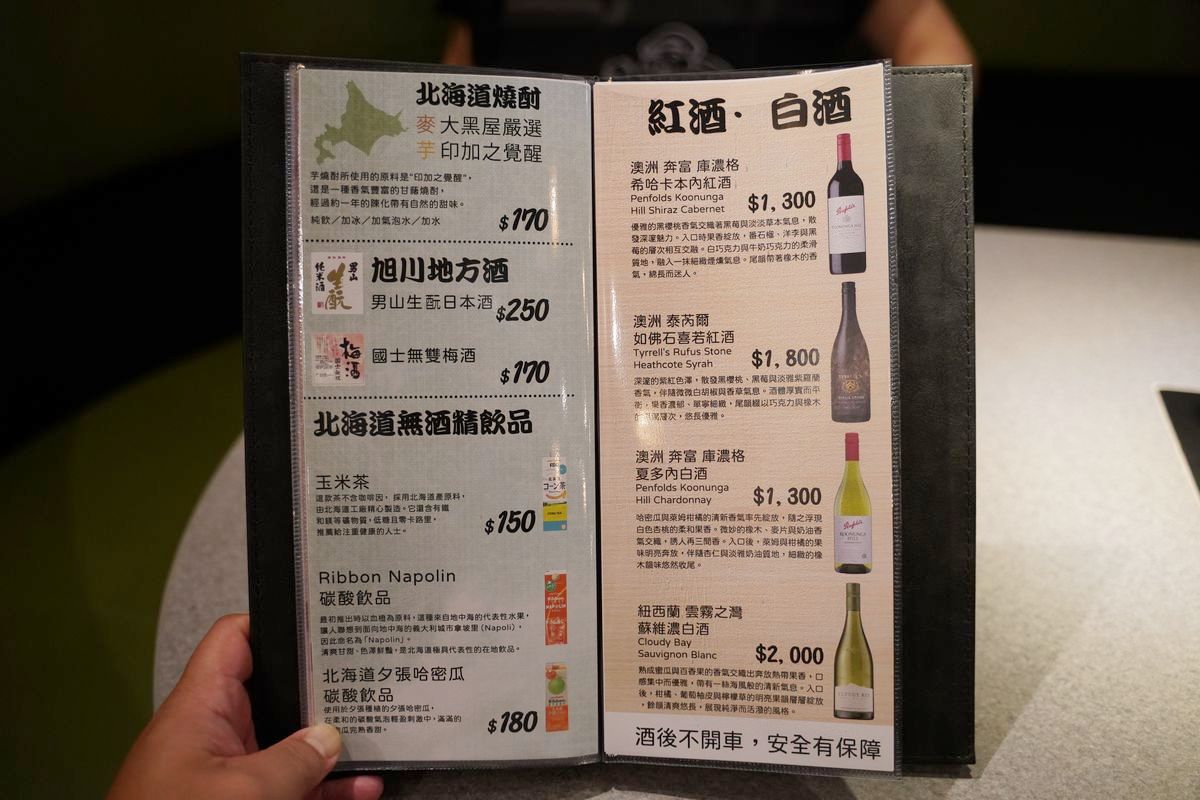 北海道燒酎
麥 大黑屋嚴選
芋 印加之覺醒
芋燒酎所使用的原料是"印加之覺醒",
這是一種香氣豐富的甘藷燒酎,
經過約一年的陳化帶有自然的甜味。
純飲／加冰／加氣泡水／加水
$170
旭川地方酒
男山
生酛
純米酒
男山生酛日本酒 $250
梅酒
國士無雙
國士無雙梅酒
$170
北海道無酒精飲品
玉米茶
這款茶不含咖啡因，採用北海道產原料，
由北海道工廠精心製造。它還含有鐵
和鎂等礦物質，低糖且零卡路里，
推薦給注重健康的人士。
$150
コーン茶
Ribbon Napolin
碳酸飲品
最初推出時以血橙為原料，這種來自地中海的代表性水果，
讓人聯想到面向地中海的義大利城市拿坡里（Napoli），
因此命名為「Napolin」。
清爽甘甜、色澤鮮豔，是北海道極具代表性的在地飲品。
NAPOLIN
北海道夕張哈密瓜
碳酸飲品
使用於夕張種植的夕張哈密瓜，
在柔和的碳酸氣泡輕盈刺激中，滿滿的
瓜完熟香甜。
$180
紅酒· 白酒
澳洲 奔富 庫濃格
希哈卡本內紅酒
Penfolds Koonunga
Hill Shiraz Cabernet
$1,300
優雅的黑櫻桃香氣交織著黑莓與淡淡草本氣息，散
發深邃魅力。入口時果香綻放，番石榴、洋李與黑
莓的層次相互交融。白巧克力與牛奶巧克力的柔滑
質地，融入一抹細緻煙燻氣息。尾韻帶著橡木的香
氣，綿長而迷人。
Penfolds
澳洲 泰芮爾
如佛石喜若紅酒
Tyrrell's Rufus Stone
Heathcote Syrah
$1,800
深邃的紫紅色澤，散發黑櫻桃、黑莓與淡雅紫羅蘭
香氣，伴隨微微白胡椒與香草氣息。酒體厚實而平
衡，果香濃郁、單寧細緻，尾韻綴以巧克力與橡木
層次，悠長優雅。
TYRRELL'S
RUFUS STONE
澳洲 奔富 庫濃格
夏多內白酒
Penfolds Koonunga
Hill Chardonnay
$1,300
哈密瓜與萊姆柑橘的清新香氣率先綻放，隨之浮現
白色杏桃的柔和果香。微妙的橡木、麥片與奶油香
氣交織，誘人再三聞香。入口後，萊姆與柑橘的果
味明亮奔放，伴隨杏仁與淡雅奶油質地，細緻的橡
木韻味悠然收尾。
Penfolds
KOONUNGA
HILL
紐西蘭 雲霧之灣
蘇維濃白酒
Cloudy Bay
Sauvignon Blanc
$2,000
熟成蜜瓜與百香果的香氣交織出奔放熱帶果香，口
感集中而優雅，帶有一絲海風般的清新氣息。入口
後，柑橘、葡萄柚皮與檸檬草的明亮果韻層層綻放
，餘韻清爽悠長，展現純淨而活潑的風格。
CLOUDY BAY
酒後不開車，安全有保障